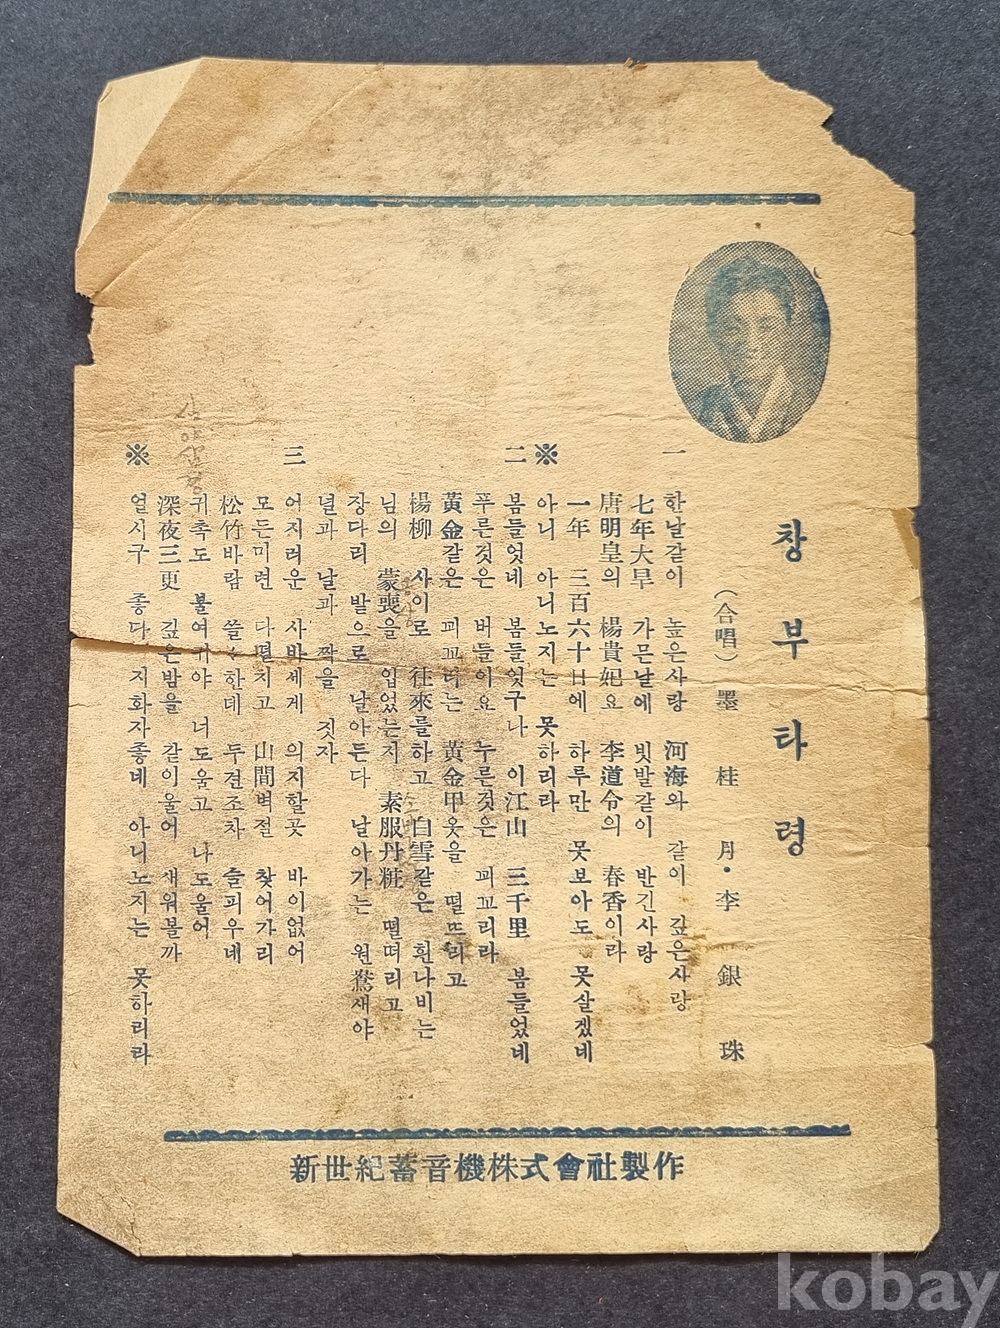 창부타령
(合唱) 墨桂月・李銀珠
一
한날같이 높은사랑 河海와 같이 깊은사랑
七年大旱 가믄날에 빗발같이 반긴사랑
唐明皇의 楊貴妃요 李道令의 春香이라
一年 三百六十日에 하루만 못보아도 못살겠네
※
아니 아니노지는 못하리라
二
봄들엇네 봄들엇구나 이江山 三千里 봄들었네
푸른것은 버들이요 누른것은 꾀꼬리라
黃金같은 꾀꼬리는 黃金甲옷을 떨뜨리고
楊柳 사이로 往來를하고 白雪같은 흰나비는
님의 蒙喪을 입었는지 素服丹粧 떨떠리고
장다리 밭으로 날아든다 날아가는 원鴦새야
널과 날과 짝을 짓자
三
어지러운 사바세계 의지할곳 바이없어
모든미련 다떨치고 山間벽절 찾어가리
松竹바람 쓸쓸한데 두견조차 슬피우네
귀촉도 불여귀야 너도울고 나도울어
深夜三更 깊은밤을 같이울어 새워볼까
※
얼시구 좋다 지화자좋네 아니노지는 못하리라
심야삼경
몽상
新世紀蓄音機株式會社製作
kobay